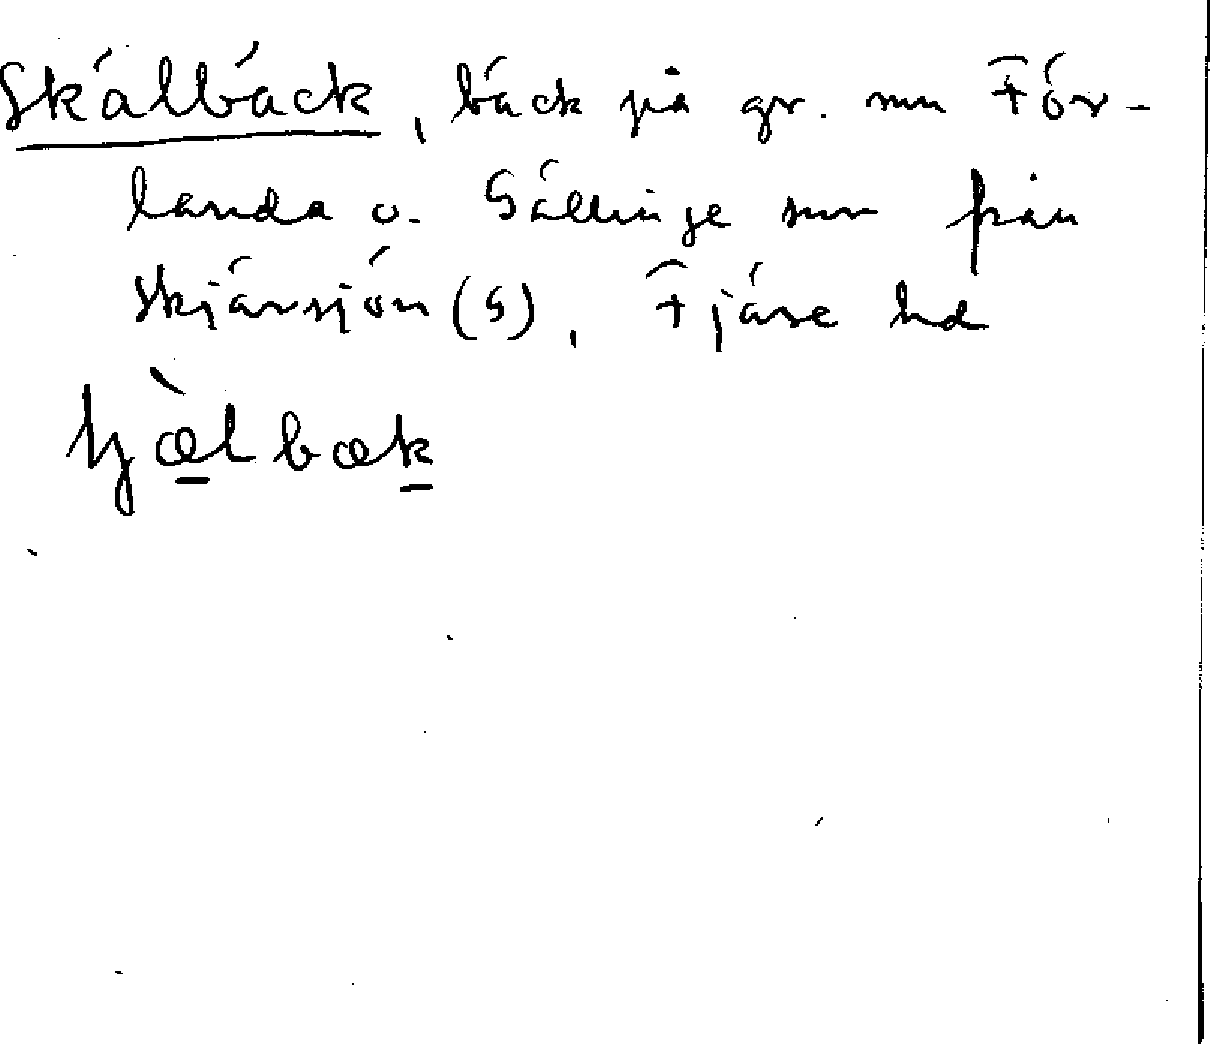 Skälbäck, bäck på gr. mn För-
landa o. Gällinge snr från
Skjärsjön (G), Fjäre hd